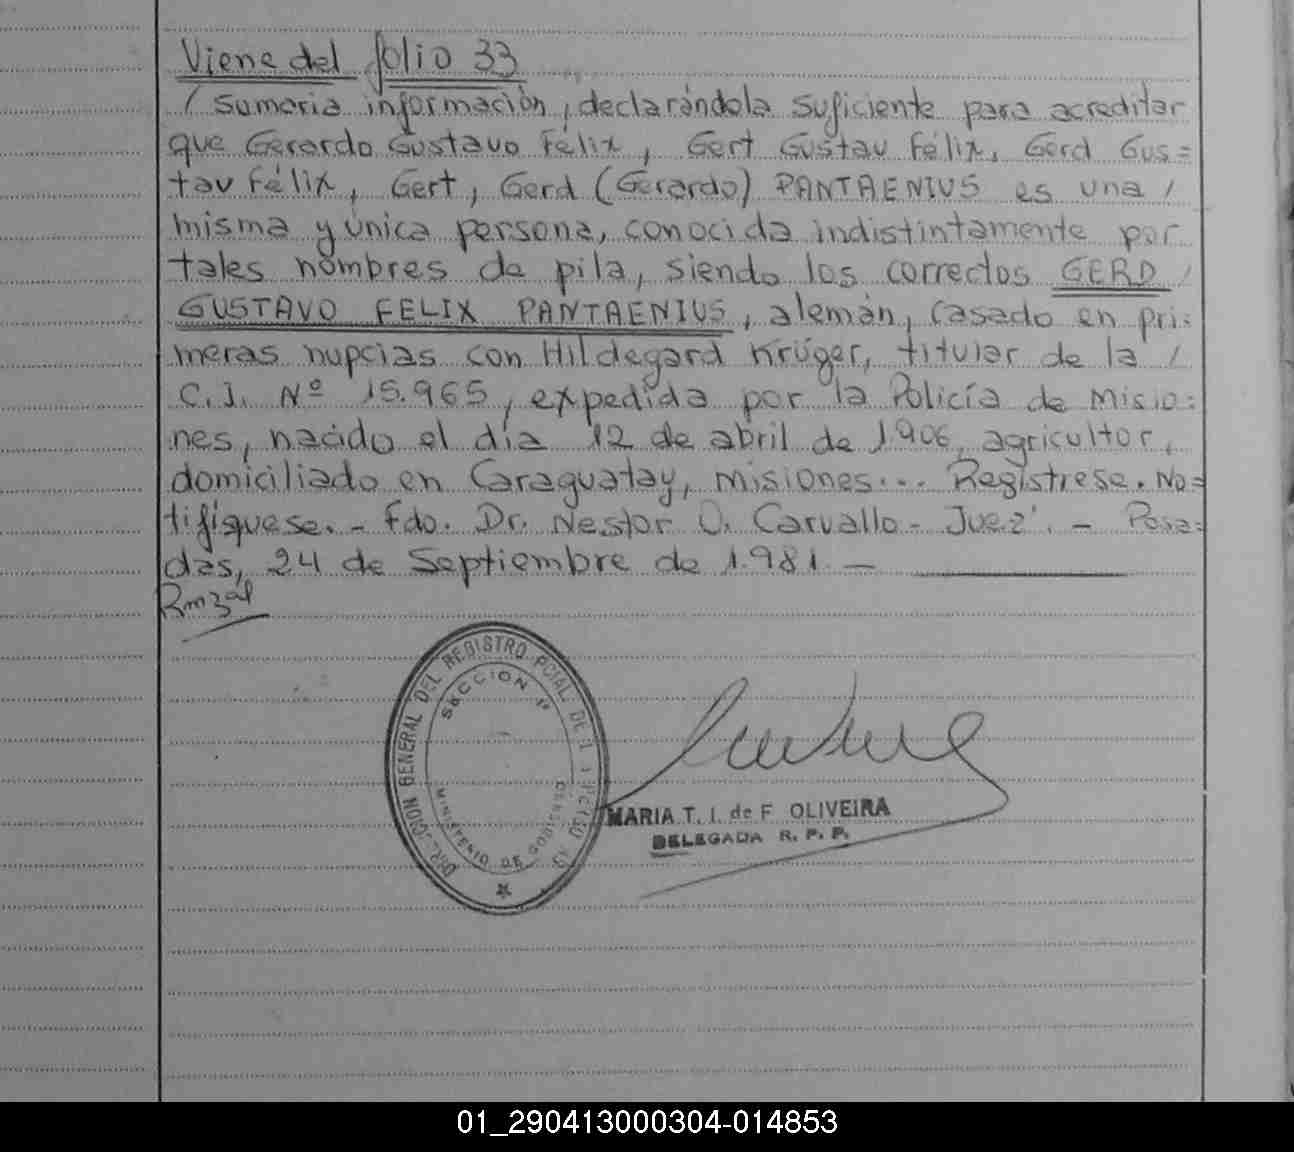 Viene del folio 33
/ Sumaria información, declarándola suficiente para acreditar
que Gerardo Gustavo Félix, Gert Gustav Félix, Gerd Gus=
tav Félix, Gert, Gerd (Gerardo) PANTAENIUS es una /
misma y única persona, conocida indistintamente por
tales nombres de pila, siendo los correctos GERD /
GUSTAVO FELIX PANTAENIUS, alemán, casado en pri-
meras nupcias con Hildegard Krüger, titular de la /
C.I. Nº 15.965, expedida por la Policía de Misio=
nes, nacido el día 12 de abril de 1906, agricultor,
domiciliado en Caraguatay, Misiones... Regístrese. No=
tifíquese.- Fdo. Dr. Nestor O. Carvallo - Juez'. - Posa=
das, 24 de Septiembre de 1.981. —
SECCION 1ª
GENERAL DEL REGISTRO PCIAL. DE
MINISTERIO DE GOBIERNO
MARIA T. I. de F. OLIVEIRA
DELEGADA R. P. P.
01_290413000304-014853